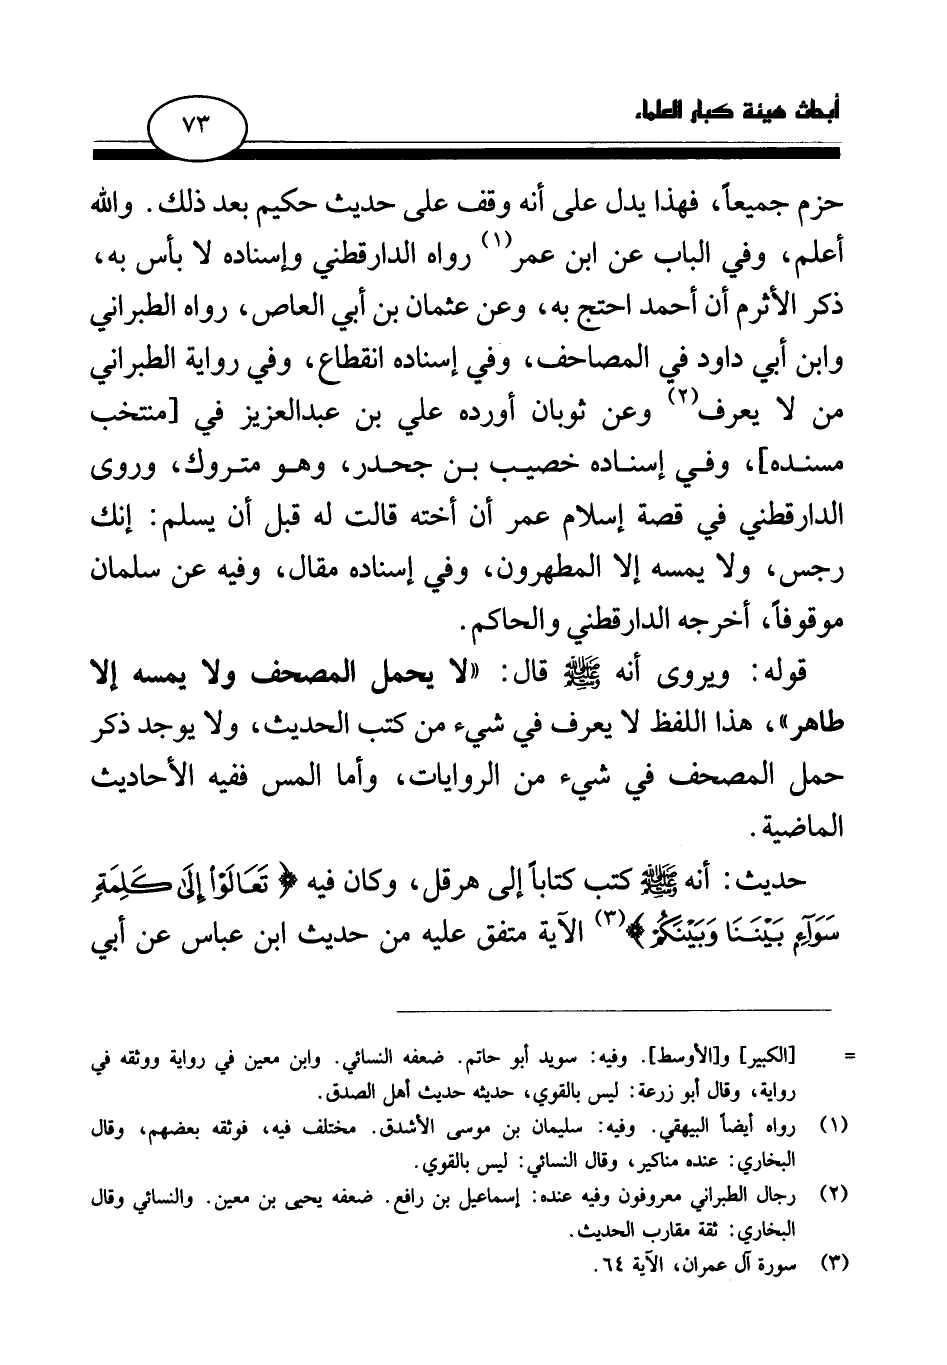 أبحاث هيئة كبار العلماء
٧٣
حزم جميعاً، فهذا يدل على أنه وقف على حديث حكيم بعد ذلك. والله
أعلم، وفي الباب عن ابن عمر(١) رواه الدارقطني وإسناده لا بأس به،
ذكر الأثرم أن أحمد احتج به، وعن عثمان بن أبي العاص، رواه الطبراني
وابن أبي داود في المصاحف، وفي إسناده انقطاع، وفي رواية الطبراني
من لا يعرف(٢) وعن ثوبان أورده علي بن عبدالعزيز في [منتخب
مسنده]، وفي إسناده خصيب بن جحدر، وهو متروك، وروى
الدارقطني في قصة إسلام عمر أن أخته قالت له قبل أن يسلم: إنك
رجس، ولا يمسه إلا المطهرون، وفي إسناده مقال، وفيه عن سلمان
موقوفاً، أخرجه الدارقطني والحاكم.
قوله: ويروى أنه ﷺ قال: «لا يحمل المصحف ولا يمسه إلا
طاهر»، هذا اللفظ لا يعرف في شيء من كتب الحديث، ولا يوجد ذكر
حمل المصحف في شيء من الروايات، وأما المس ففيه الأحاديث
الماضية.
حديث: أنه ﷺ كتب كتاباً إلى هرقل، وكان فيه ﴿ تَعَالَوْا إِلَىٰ كَلِمَةٍ
سَوَآءٍ بَيْنَنَا وَبَيْنَكُمْ ﴾(٣) الآية متفق عليه من حديث ابن عباس عن أبي
= [الكبير] و[الأوسط]. وفيه: سويد أبو حاتم. ضعفه النسائي. وابن معين في رواية ووثقه في
رواية، وقال أبو زرعة: ليس بالقوي، حديثه حديث أهل الصدق.
(١) رواه أيضاً البيهقي. وفيه: سليمان بن موسى الأشدق. مختلف فيه، فوثقه بعضهم، وقال
البخاري: عنده مناكير، وقال النسائي: ليس بالقوي.
(٢) رجال الطبراني معروفون وفيه عنده: إسماعيل بن رافع. ضعفه يحيى بن معين. والنسائي وقال
البخاري: ثقة مقارب الحديث.
(٣) سورة آل عمران، الآية ٦٤.